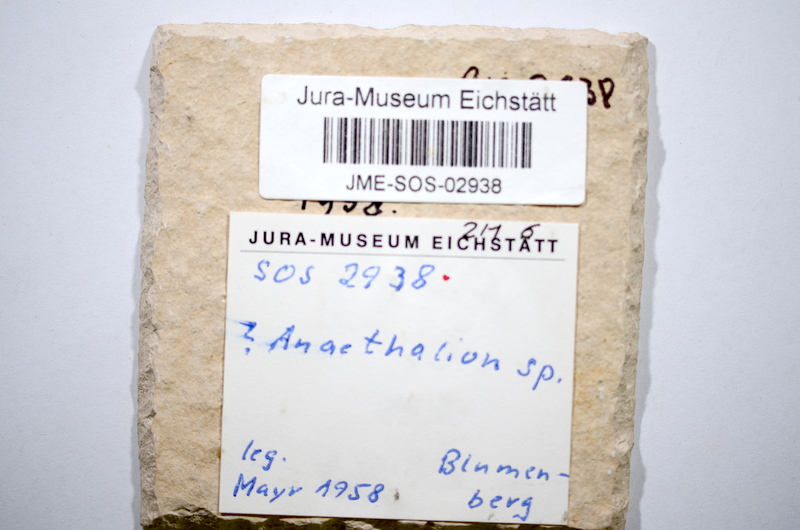 Jura-Museum Eichstätt
JME-SOS-02938
1958.
JURA-MUSEUM EICHSTÄTT
SOS 2938
? Anaethalion sp.
leg.
Mayr 1958
Blumen-
berg